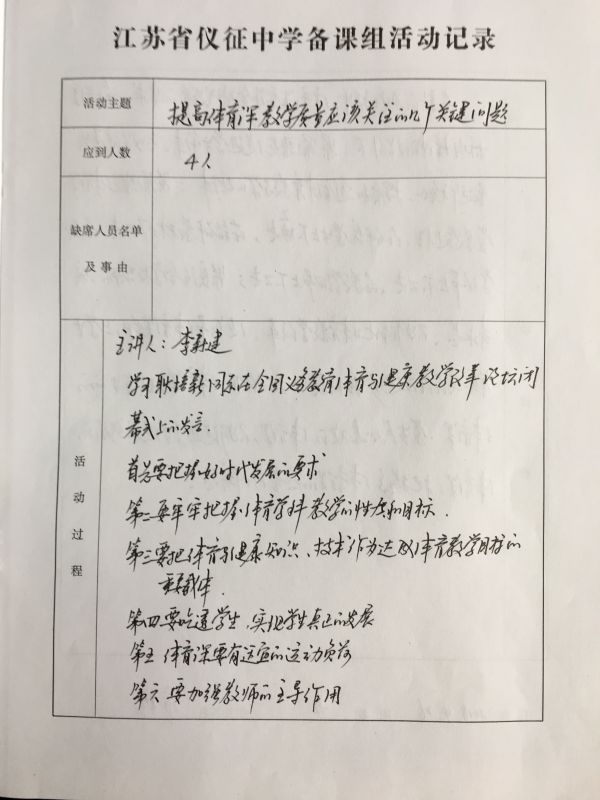 江苏省仪征中学备课组活动记录
活动主题
提高体育课教学质量应该关注的几个关键问题
应到人数
4人
缺席人员名单
及事由
活动过程
主讲人：李新建
学习耿培新同志在全国义务教育体育与健康教学改革论坛闭
幕式上的发言.
首先要把握好时代发展的要求
第二要牢牢把握体育学科教学的性质和目标.
第三要把体育与健康知识、技术作为达成体育教学目标的
重要载体
第四要吃透学生,实现学生真正的发展
第五 体育课要有适宜的运动负荷
第六 要加强教师的主导作用